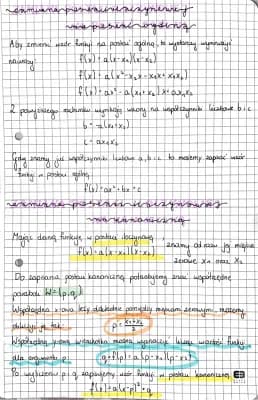 zamiana postaci iloczynowej
na postać ogólną
Aby zmienić wzór funkcji na postać ogólną, to wystarczy wymnożyć
nawiasy:
f(x) = a(x-x₁)(x-x₂)
f(x) = a(x²-x₂x-x₁x+x₁x₂)
f(x) = ax² - a(x₁+x₂)x + ax₁x₂
Z powyższego rachunku wynikają wzory na współczynniki liczbowe b i c
b = -a(x₁+x₂)
c = ax₁x₂
Gdy znamy już współczynniki liczbowe a, b i c to możemy zapisać wzór
funkcji w postaci ogólnej
f(x) = ax² + bx + c
zamiana postaci iloczynowej
na kanoniczną
Mając daną funkcję w postaci iloczynowej,
f(x) = a(x-x₁)(x-x₂)
znamy od razu jej miejsca
zerowe x₁ oraz x₂
Do zapisania postaci kanonicznej potrzebujemy znać współrzędne
paraboli W=(p,q)
Współrzędna x-owa leży dokładnie pomiędzy miejscami zerowymi, możemy
p = x₁+x₂/2
dla argumentu p:
q = f(p) = a(p-x₁)(p-x₂)
Po wyliczeniu p i q zapisujemy wzór funkcji w postaci kanonicznej
f(x) = a(x-p)² + q